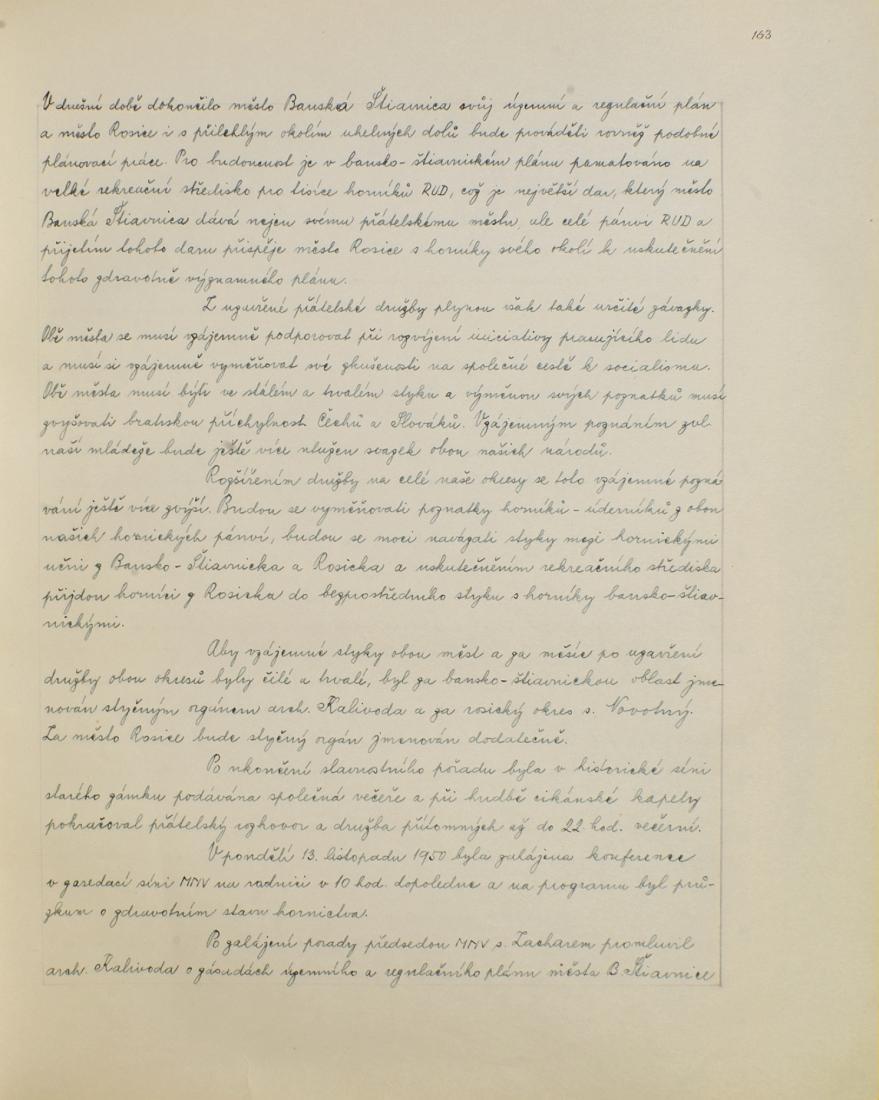 163
V dnešní době dokončilo město Banská Štiavnica svůj územní a regulační plán
a město Rosice i s přilehlým okolím uhelných dolů bude prováděti rovněž podobné
plánovací práce. Pro budoucnost je v bansko-štiavnickém plánu pamatováno na
velké rekreační středisko pro tisíce horníků RUD, což je největší dar, který město
Banská Štiavnica dává nejen svému přátelskému městu, ale celé pánvi RUD a
přijetím tohoto daru přispěje město Rosice s horníky svého okolí k uskutečnění
tohoto zdravotně významného plánu.
Z uzavřené přátelské družby plynou však také určité závazky.
Obě města se musí vzájemně podporovat při rozvíjení iniciativy pracujícího lidu
a musí si vzájemně vyměňovat své zkušenosti na společné cestě k socialismu.
Obě města musí býti ve stálém a trvalém styku a výměnou svých poznatků musí
zvyšovati bratrskou příchylnost Čechů a Slováků. Vzájemným poznáním zvl.
naší mládeže bude ještě více utužen svazek obou našich národů.
Rozšířením družby na celé naše okresy se toto vzájemné pozná
vání ještě více zvýší. Budou se vyměňovati poznatky horníků - úderníků z obou
našich hornických pánví, budou se moci navázati styky mezi hornickými
učni z Bansko-Štiavnicka a Rosicka a uskutečněním rekreačního střediska
přijdou horníci z Rosicka do bezprostředního styku s horníky bansko-štiav-
nickými.
Aby vzájemné styky obou měst a za měsíc po uzavření
družby obou okresů byly čilé a trvalé, byl za bansko-štiavnickou oblast jme-
nován styčným orgánem arch. Kalivoda a za rosický okres s. Novotný.
Za město Rosice bude styčný orgán jmenován dodatečně.
Po ukončení slavnostního pořadu byla v historické síni
starého zámku podávána společná večeře a při hudbě cikánské kapely
pokračoval přátelský rozhovor a družba přítomných až do 22 hod. večerní.
V pondělí 13. listopadu 1950 byla zahájena konference
v zasedací síni MNV na radnici v 10 hod. dopoledne a na programu byl prů-
zkum o zdravotním stavu hornictva.
Po zahájení porady předsedou MNV s. Zacharem promluvil
arch. Kalivoda o zásadách územního a regulačního plánu města B. Štiavnice